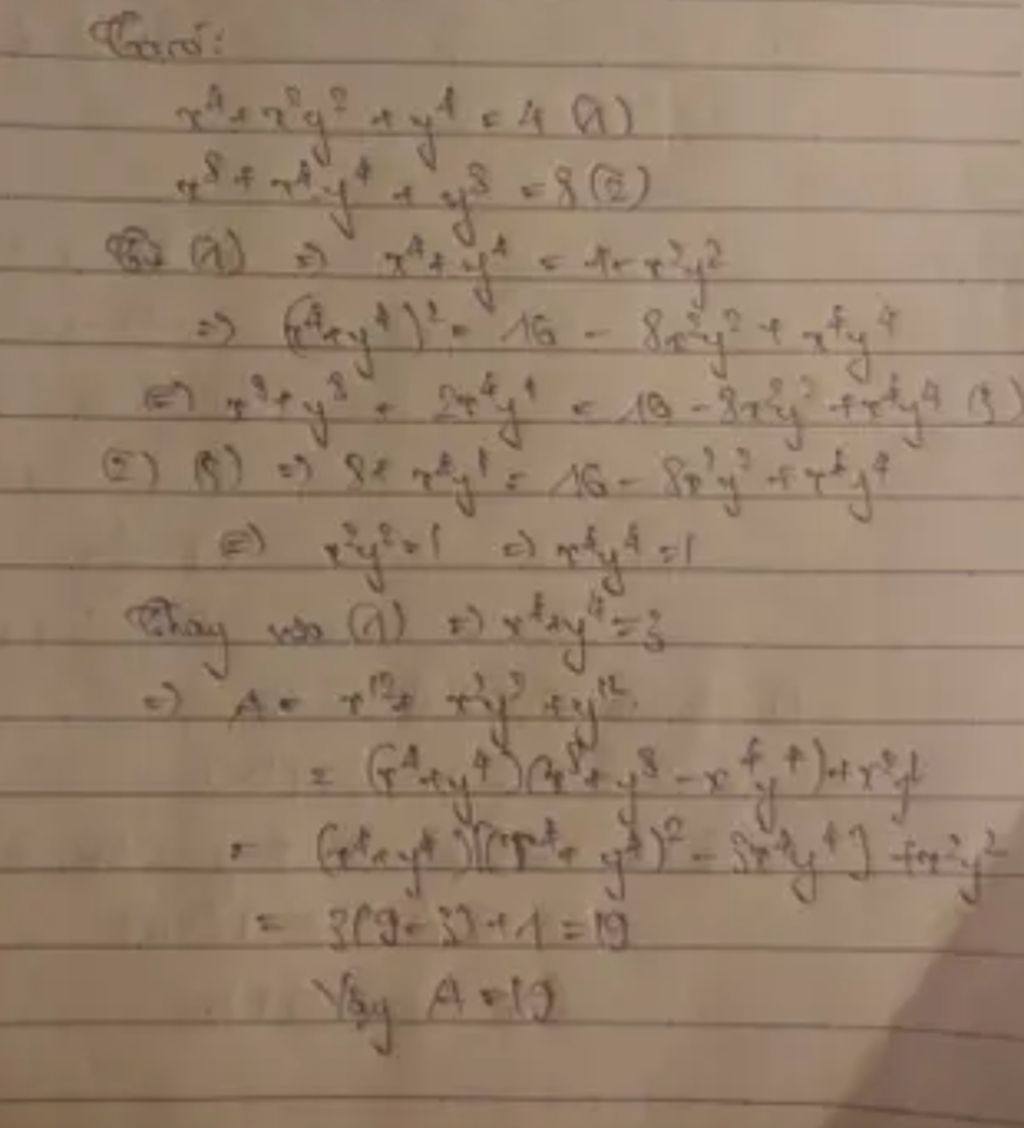 Ta có:
x⁴ + x²y² + y⁴ = 4 (1)
x⁸ + x⁴y⁴ + y⁸ = 8 (2)
Từ (1) => x⁴ + y⁴ = 4 - x²y²
=> (x⁴ + y⁴)² = 16 - 8x²y² + x⁴y⁴
<=> x⁸ + y⁸ + 2x⁴y⁴ = 16 - 8x²y² + x⁴y⁴ (3)
(2) (3) => 8 + x⁴y⁴ = 16 - 8x²y² + x⁴y⁴
<=> x²y² = 1 => x⁴y⁴ = 1
Thay vào (1) => x⁴ + y⁴ = 3
=> A = x¹² + x²y² + y¹²
= (x⁴ + y⁴)(x⁸ + y⁸ - x⁴y⁴) + x²y²
= (x⁴ + y⁴)[(x⁴ + y⁴)² - 3x⁴y⁴] + x²y²
= 3(9 - 3) + 1 = 19
Vậy A = 19